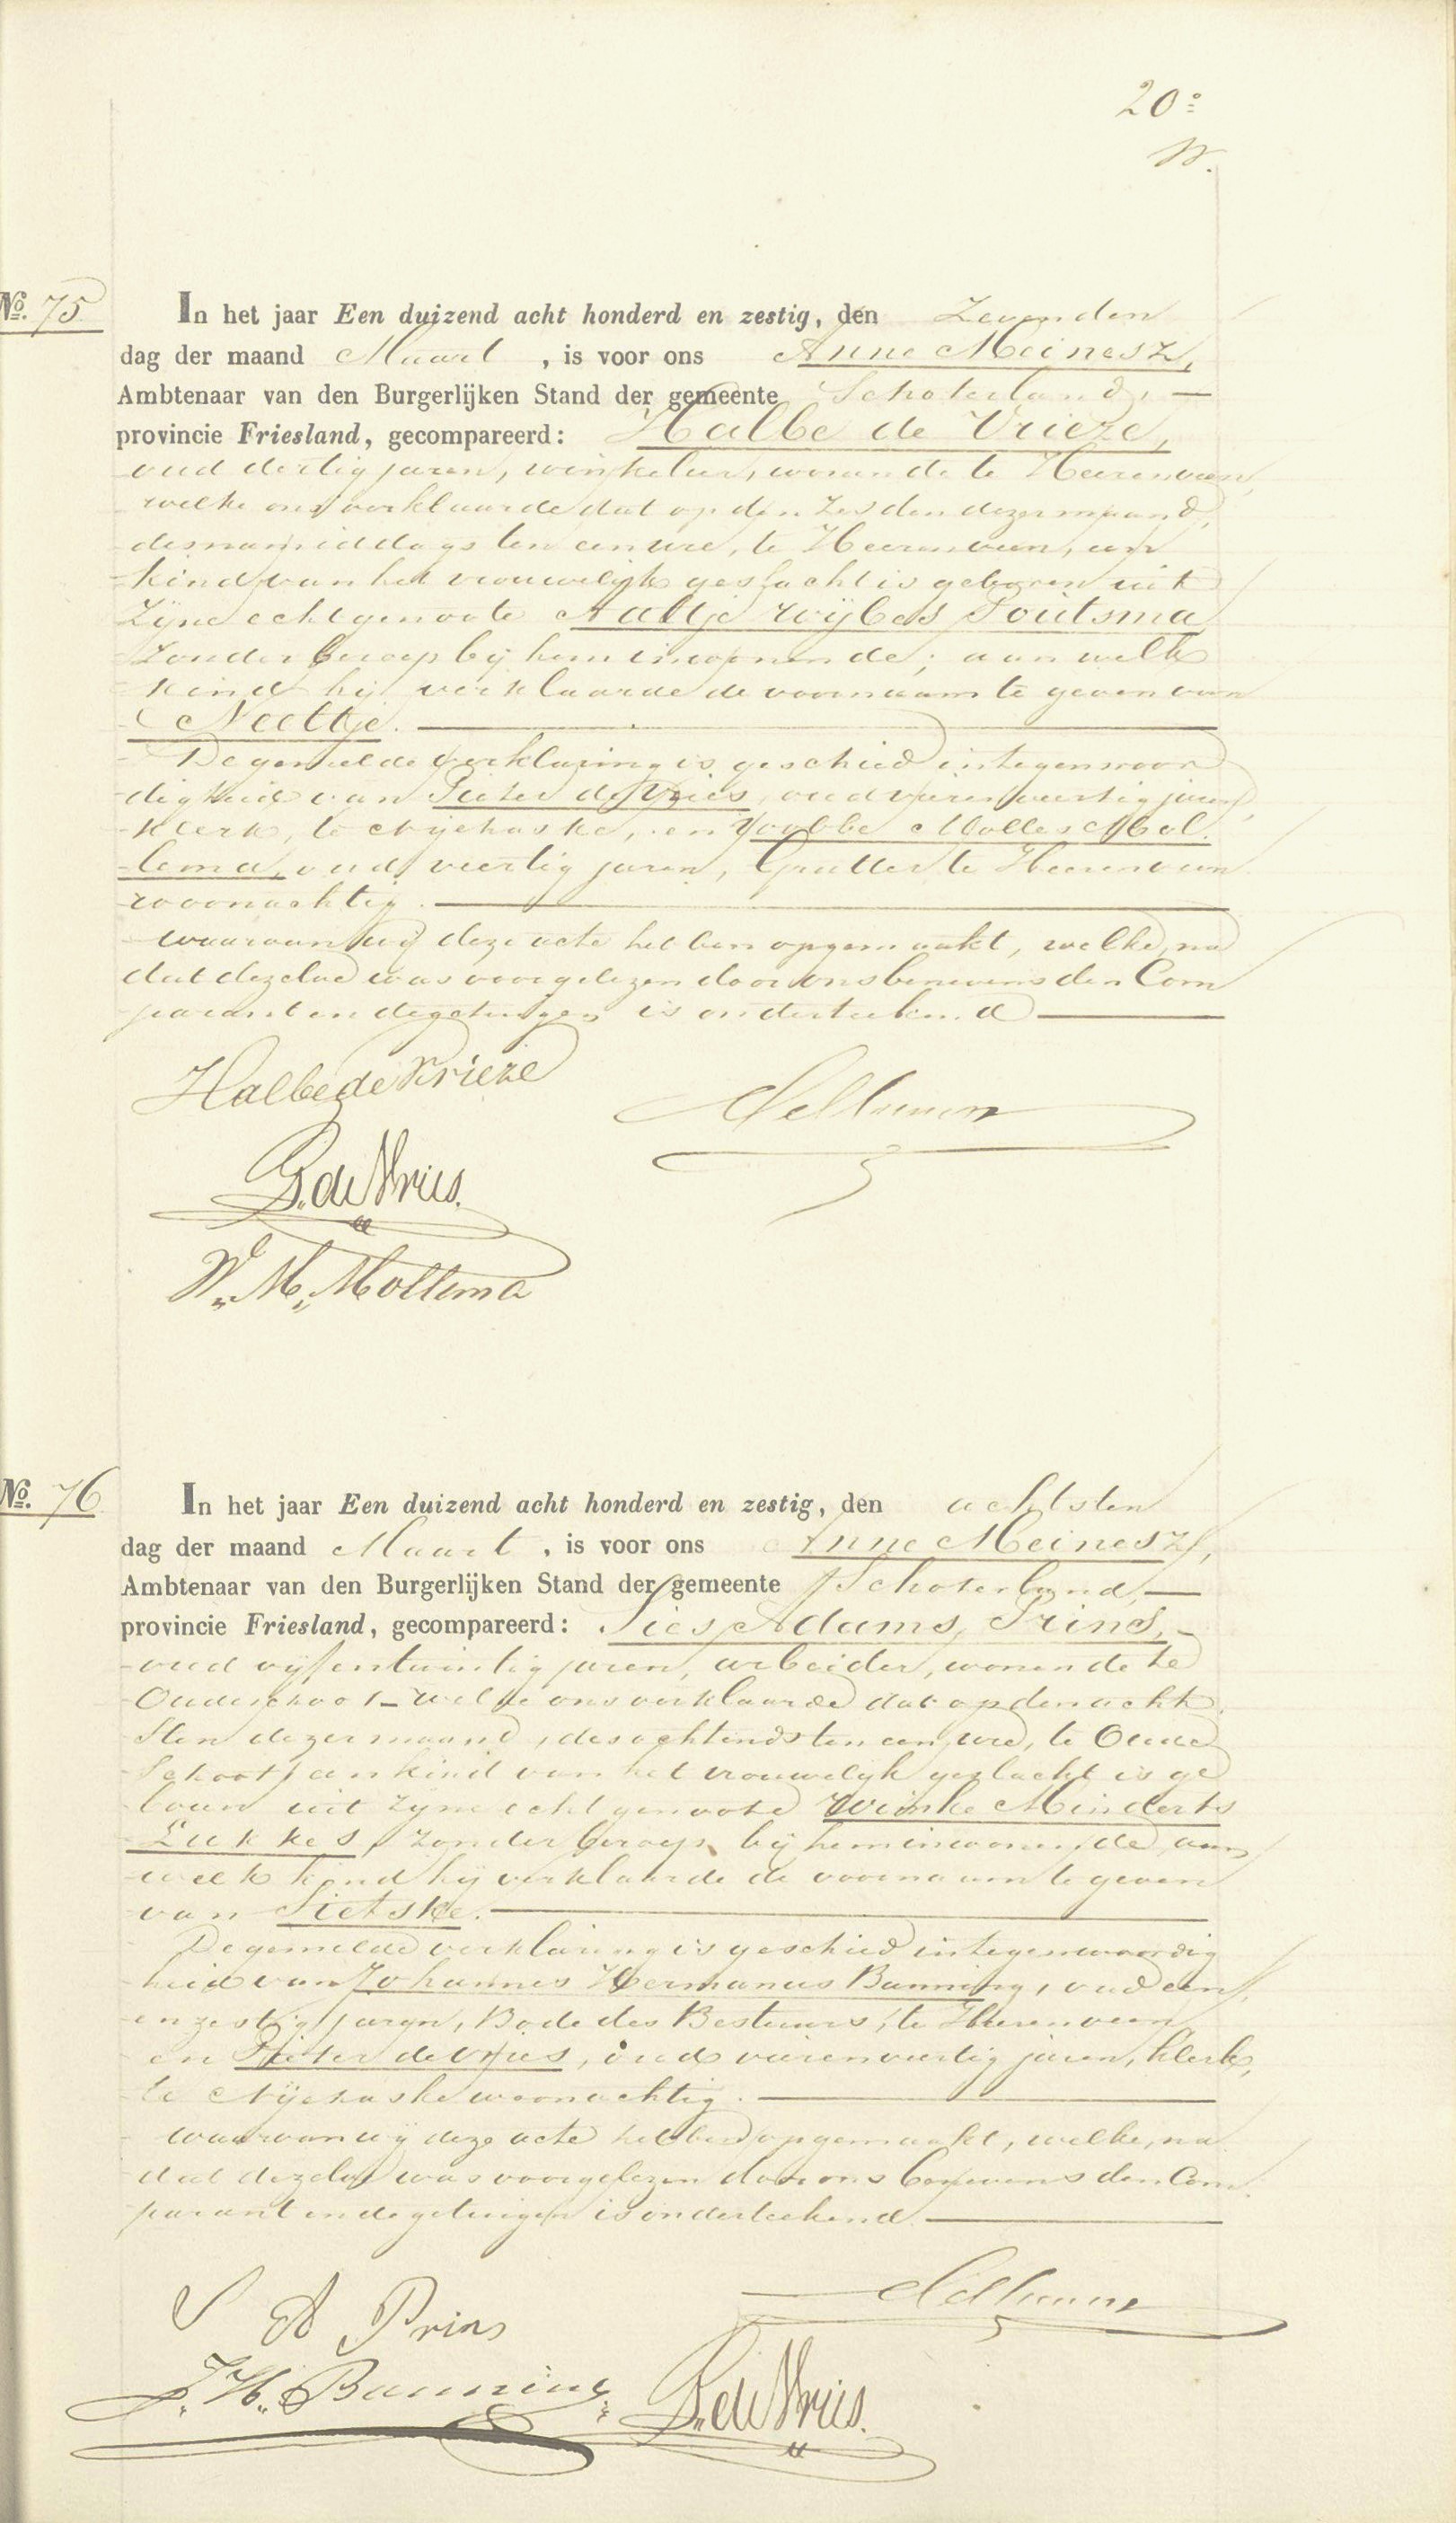 20
No. 75
In het jaar Een duizend acht honderd en zestig, den Zevenden
dag der maand Maart, is voor ons Anne Meinesz,
Ambtenaar van den Burgerlijken Stand der gemeente Schoterland, —
provincie Friesland, gecompareerd: Halbe de Vrieze,
oud dertig jaren, winkelier, wonende te Heerenveen,
welke ons verklaarde dat op den Zesden dezer maand,
des namiddags ten een ure, te Heerenveen, een
kind van het vrouwelijk geslacht is geboren uit
Zijne echtgenoote Aaltje Wijbes Poutsma
Zonder beroep bij hem inwonende; aan welk
kind hij verklaarde de voornaam te geven van
Neeltje.
De gemelde verklaring is geschied in tegenwoor
digheid van Pieter de Vries, oud vierenveertig jaren,
klerk, te Nijehaske, en Wobbe Molles Mol
lema, oud veertig jaren, Grutter te Heerenveen
woonachtig.
waarvan wij deze acte hebben opgemaakt, welke, na
dat dezelve was voorgelezen door ons benevens den Com
parant en de getuigen is onderteekend
Halbe de Vrieze
AMeinesz
P. de Vries.
W. M. Mollema
No. 76
In het jaar Een duizend acht honderd en zestig, den achtsten
dag der maand Maart, is voor ons Anne Meinesz,
Ambtenaar van den Burgerlijken Stand der gemeente Schoterland, —
provincie Friesland, gecompareerd: Sies Adams Prins, -
oud vijfentwintig jaren, arbeider, wonende te
Oudeschoot - welke ons verklaarde dat op den acht
sten dezer maand, des ochtends ten een ure, te Oude
Schoot, een kind van het vrouwelijk geslacht is ge
boren uit zijne echtgenoote Wimke Minderts
Lukkes, zonder beroep, bij hem inwonende, aan
welk kind hij verklaarde de voornaam te geven
van Sietske.
De gemelde verklaring is geschied in tegenwoordig
heid van Johannes Hermanus Banning, oud een
en zestig jaren, Bode des Bestuurs, te Heerenveen
en Pieter de Vries, oud vierenveertig jaren, klerk,
te Nijehaske woonachtig.
waarvan wij deze acte hebben opgemaakt, welke, na
dat dezelve was voorgelezen door ons benevens den Com
parant en de getuigen is onderteekend.
S A Prins
AMeinesz
J. H. Banning
P. de Vries.